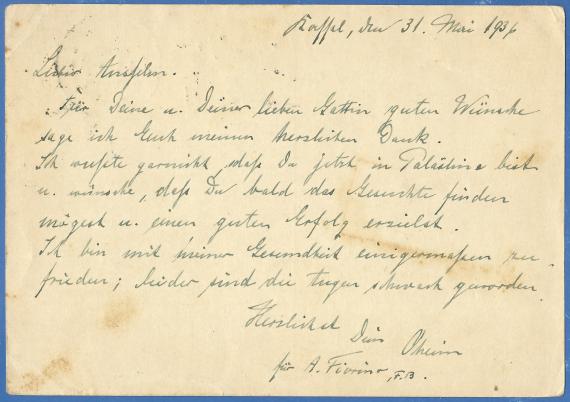 Kassel, den 31. Mai 1936
Lieber Anselm.
Für Deine u. Deiner lieben Gattin guten Wünsche
sage ich Euch meinen herzlichen Dank.
Ich wußte garnicht, daß Du jetzt in Palästina bist
u. wünsche, daß Du bald das Gesuchte finden
mögest u. einen guten Erfolg erzielst.
Ich bin mit meiner Gesundheit einigermaßen zu-
frieden; leider sind die Augen schwach geworden.
Herzlichst
Dein Oheim
für A. Fiorino, F.B.